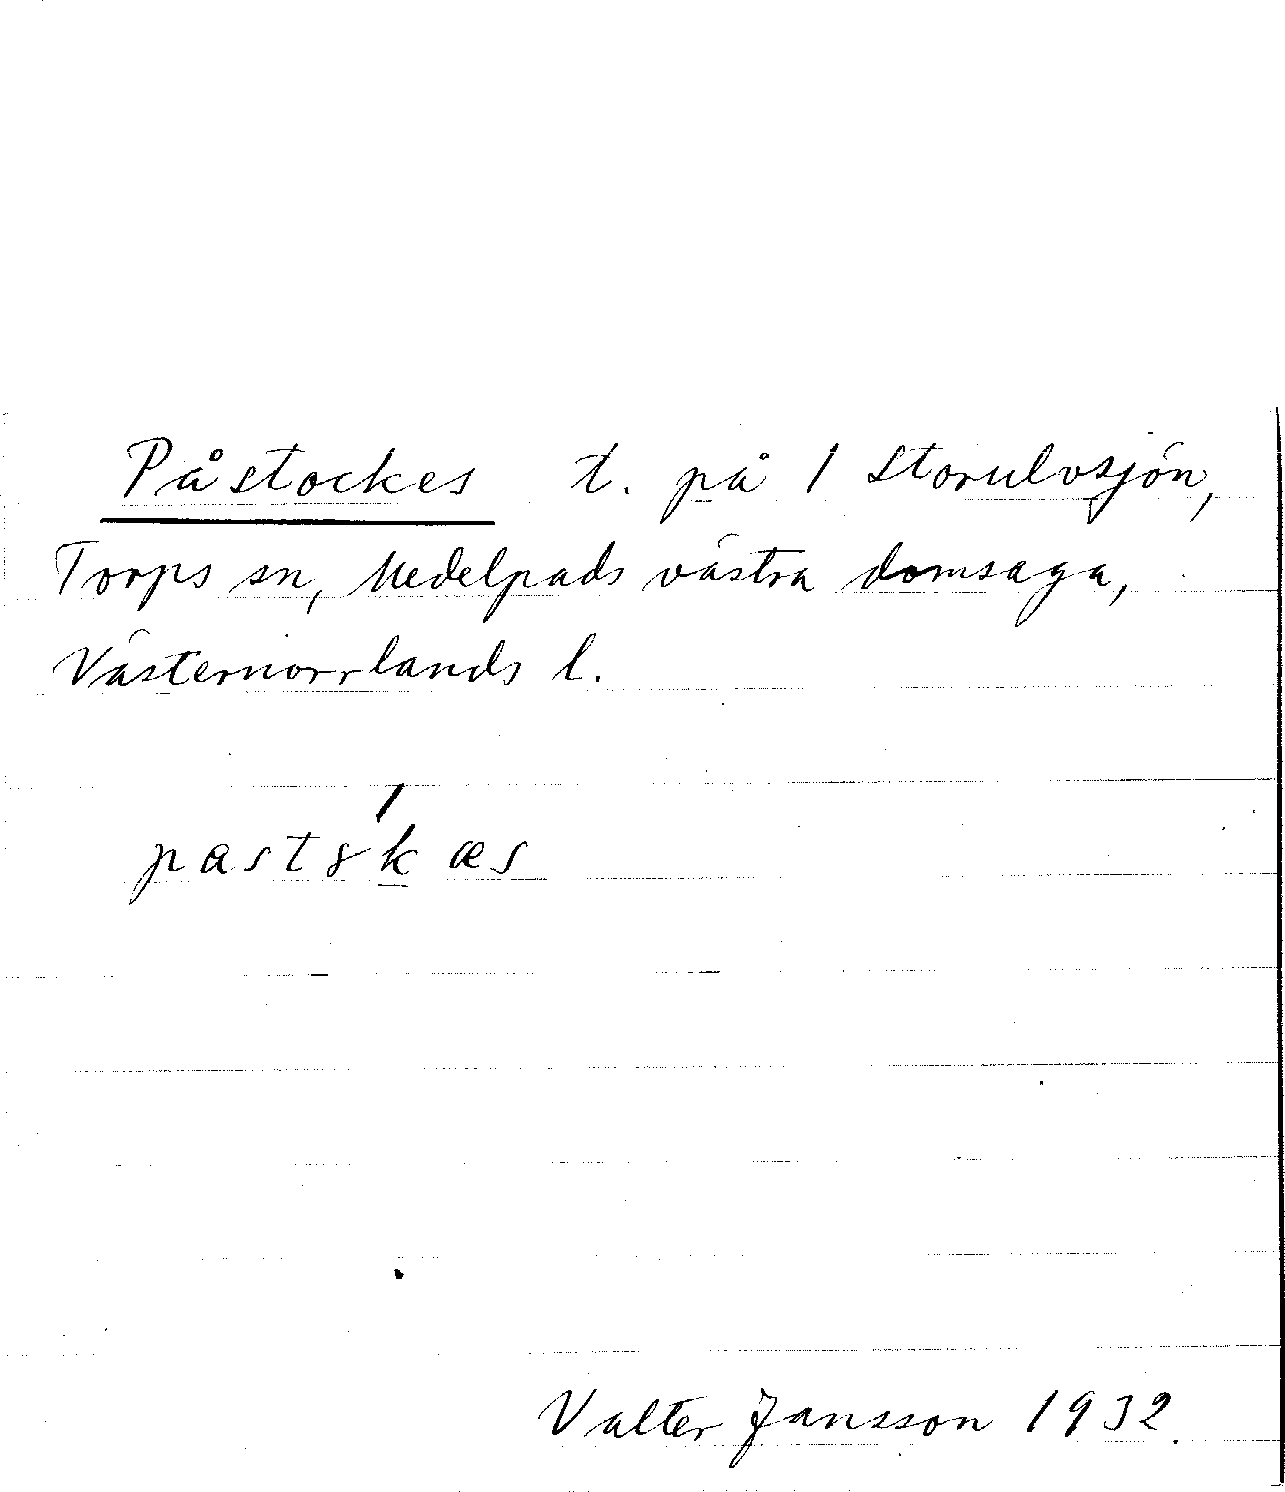 Påstockes t. på 1 Storulvsjön,
Torps sn, Medelpads västra domsaga,
Västernorrlands l.
Valter Jansson 1932.